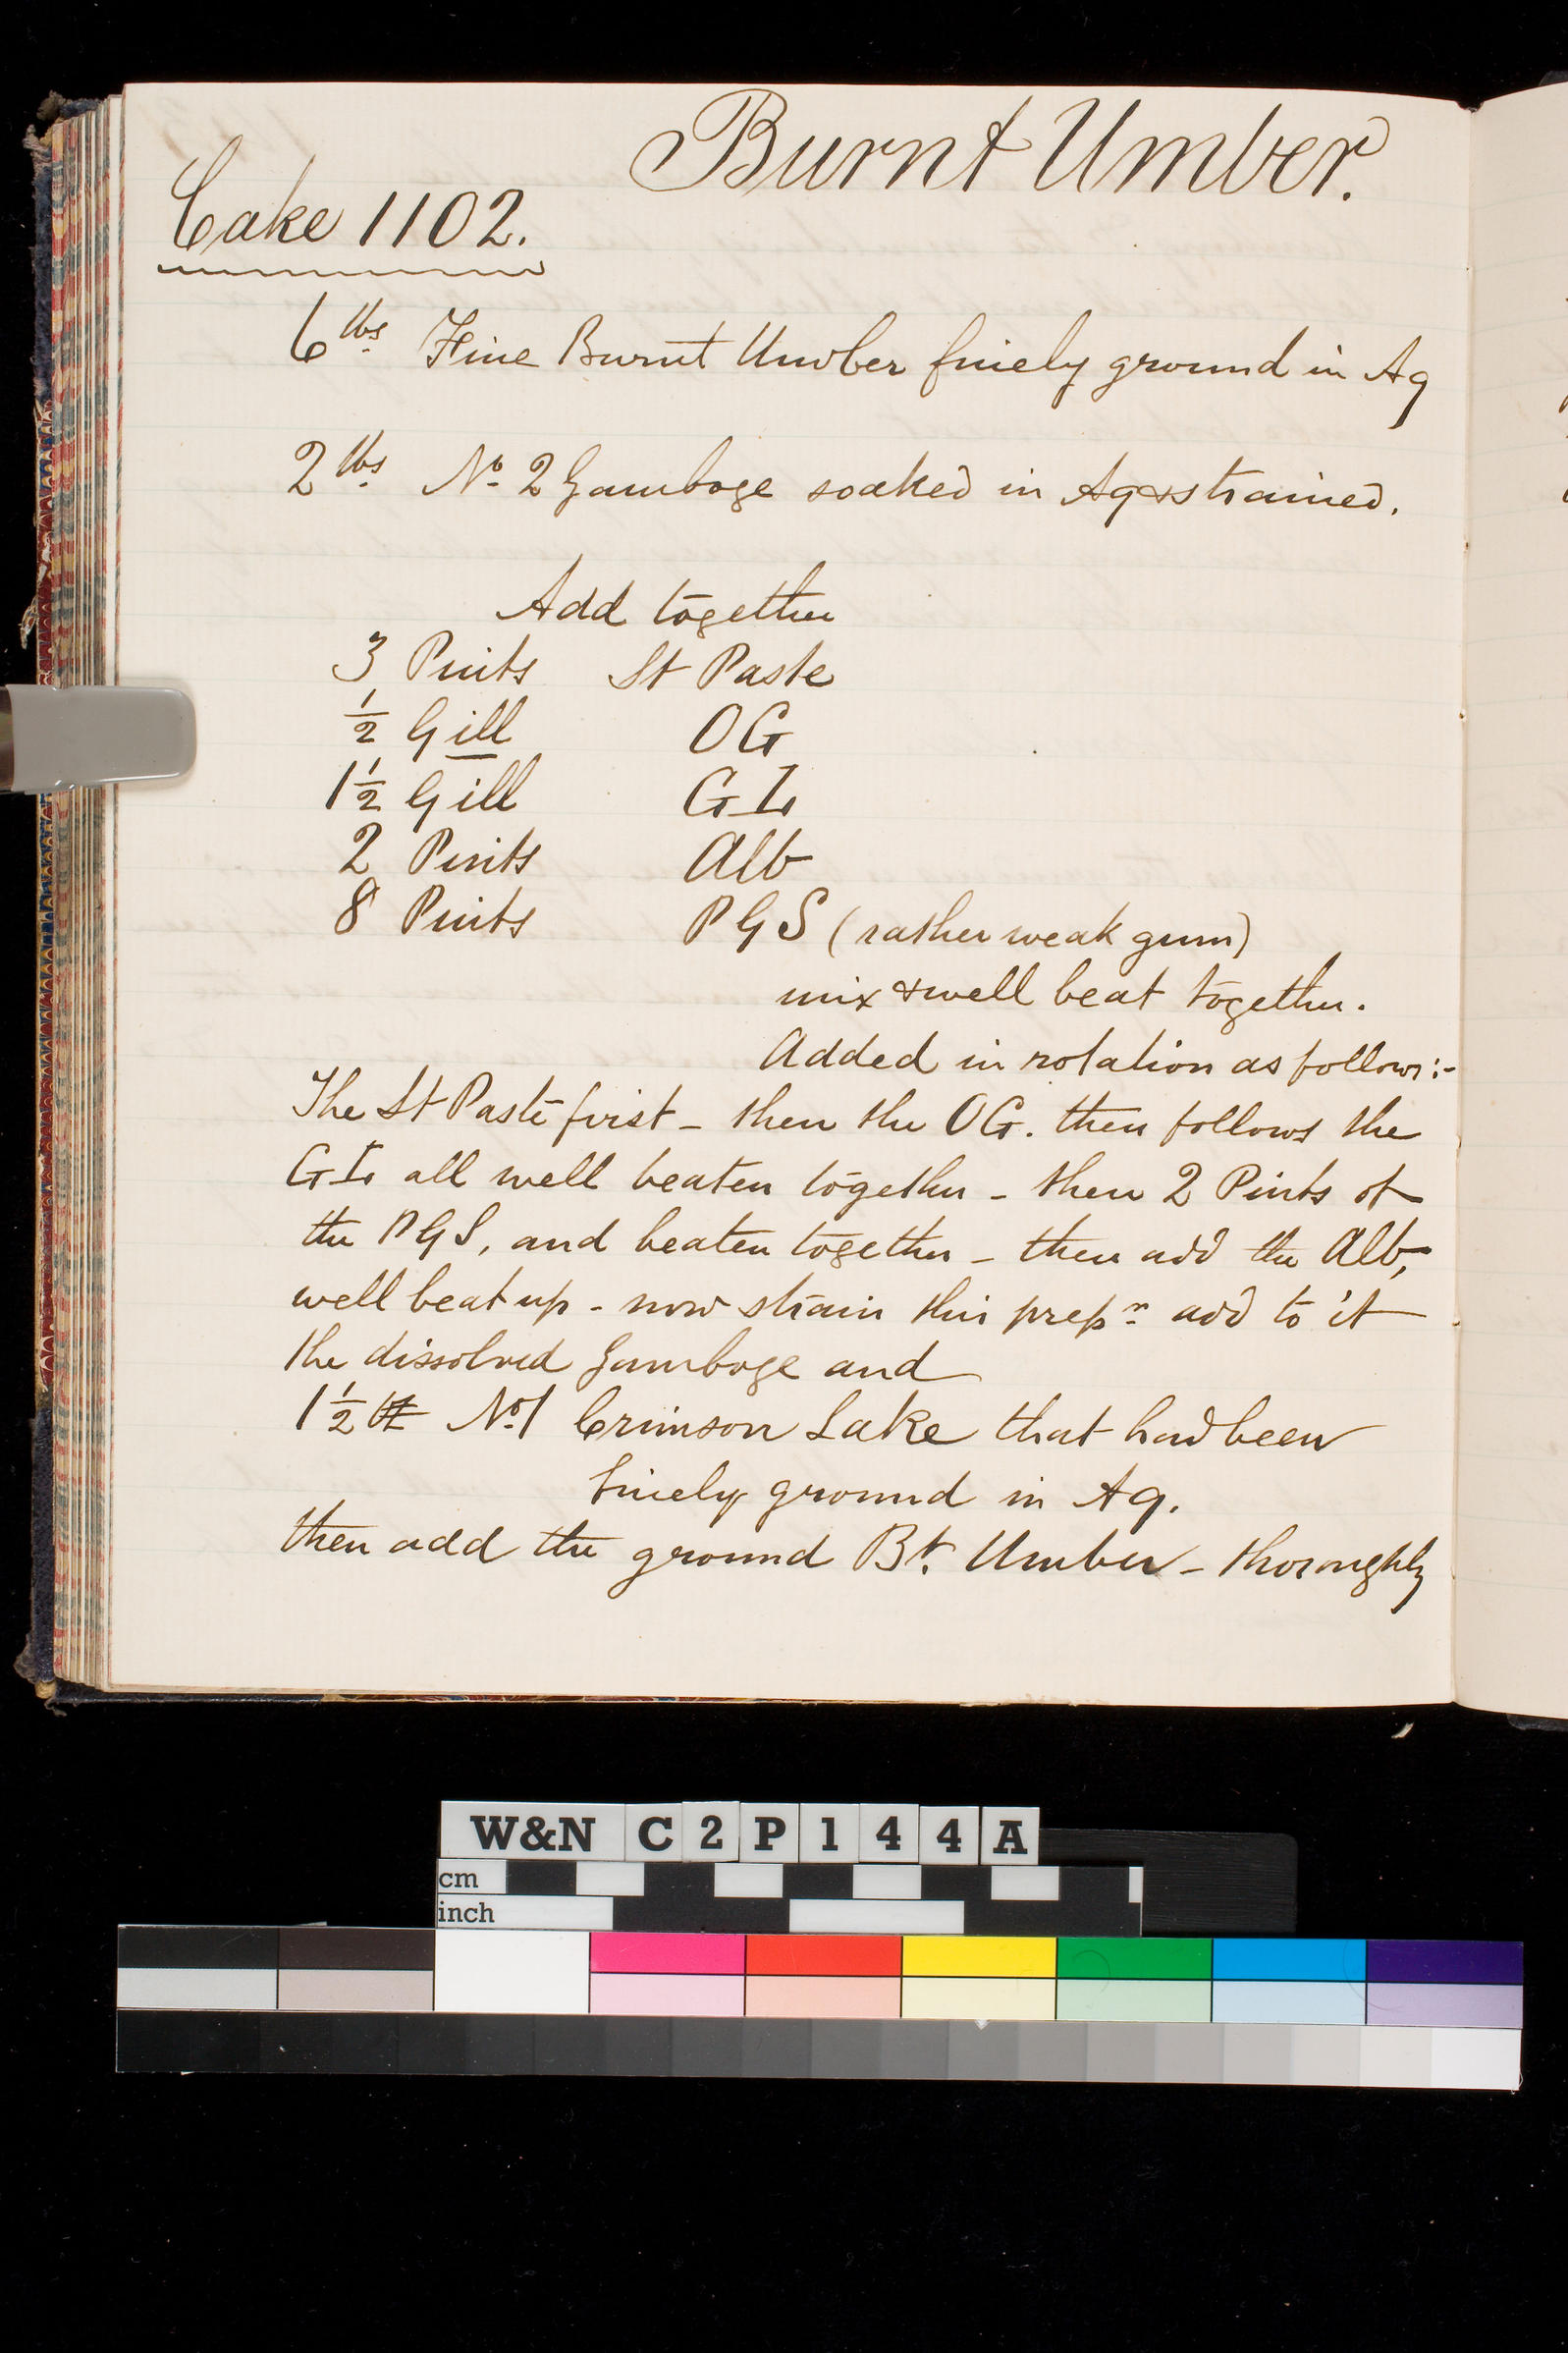 Burnt Umber.
Cake 1102.
6 lbs. Fine Burnt Umber finely ground in Aq
2 lbs. No. 2 Gamboge soaked in Aq & strained.
Add together
3 Pints St Paste
1/2 Gill OG
1 1/2 Gill GL
2 Pints Alb
8 Pints PGS (rather weak gum)
mix & well beat together.
Added in rotation as follows:-
The St Paste first - then the OG. then follows the
GL all well beaten together - then 2 Pints of
the PGS, and beaten together - then add the Alb,
well beat up - now strain this prepn. add to it
the dissolved Gamboge and
1 1/2 lb No. 1 Crimson Lake that had been
finely ground in Aq.
then add the ground Bt. Umber - thoroughly
W&N C2P144A
cm
inch